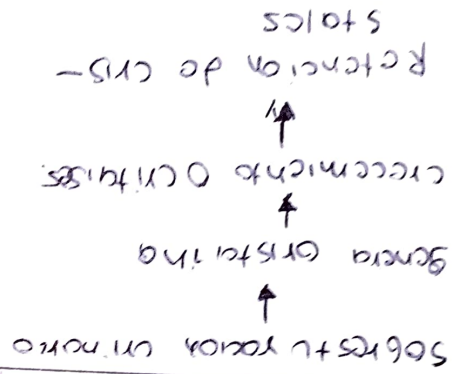 Sobresturación urinaria
↓
gencia cristalina
↓
crecimiento O cristales
↓
Retencion de cris-
stales